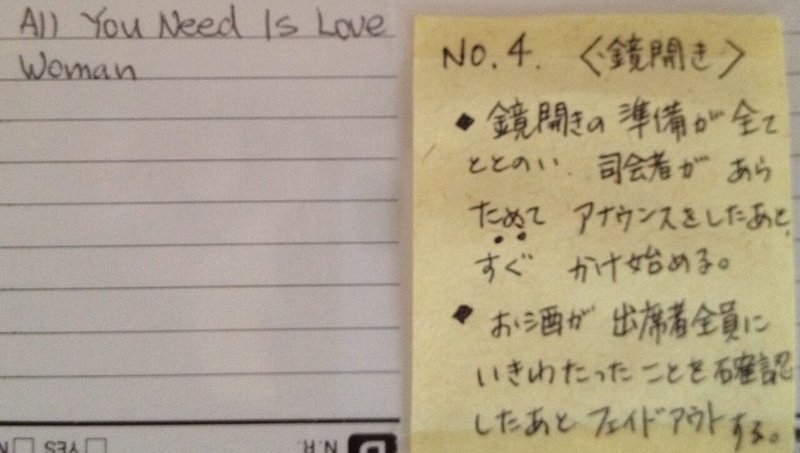 All You Need Is Love
Woman
NO. 4. 〈鏡開き〉
◆ 鏡開きの 準備が 全て
ととのい、司会者が あら
ためて アナウンスをしたあと、
すぐ かけ始める。
◆ お酒が 出席者全員に
いきわたったことを確認
したあと フェイドアウトする。
YES
N.R.
D